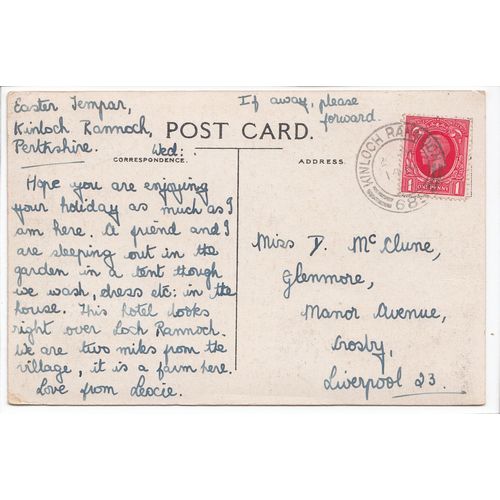 Easter Tempar,
Kinloch Rannoch,
Perthshire.
Wed:
If away, please
forward.
POST CARD.
CORRESPONDENCE.
ADDRESS.
KINLOCH RANNOCH
689
1 ONE PENNY 1
Hope you are enjoying
your holiday as much as I
am here. A friend and I
are sleeping out in the
garden in a tent though
we wash, dress etc: in the
house. This hotel looks
right over Loch Rannoch.
We are two miles from the
village, it is a farm here.
Love from
Miss D. McClune,
Glenmore,
Manor Avenue,
Crosby,
Liverpool 23.